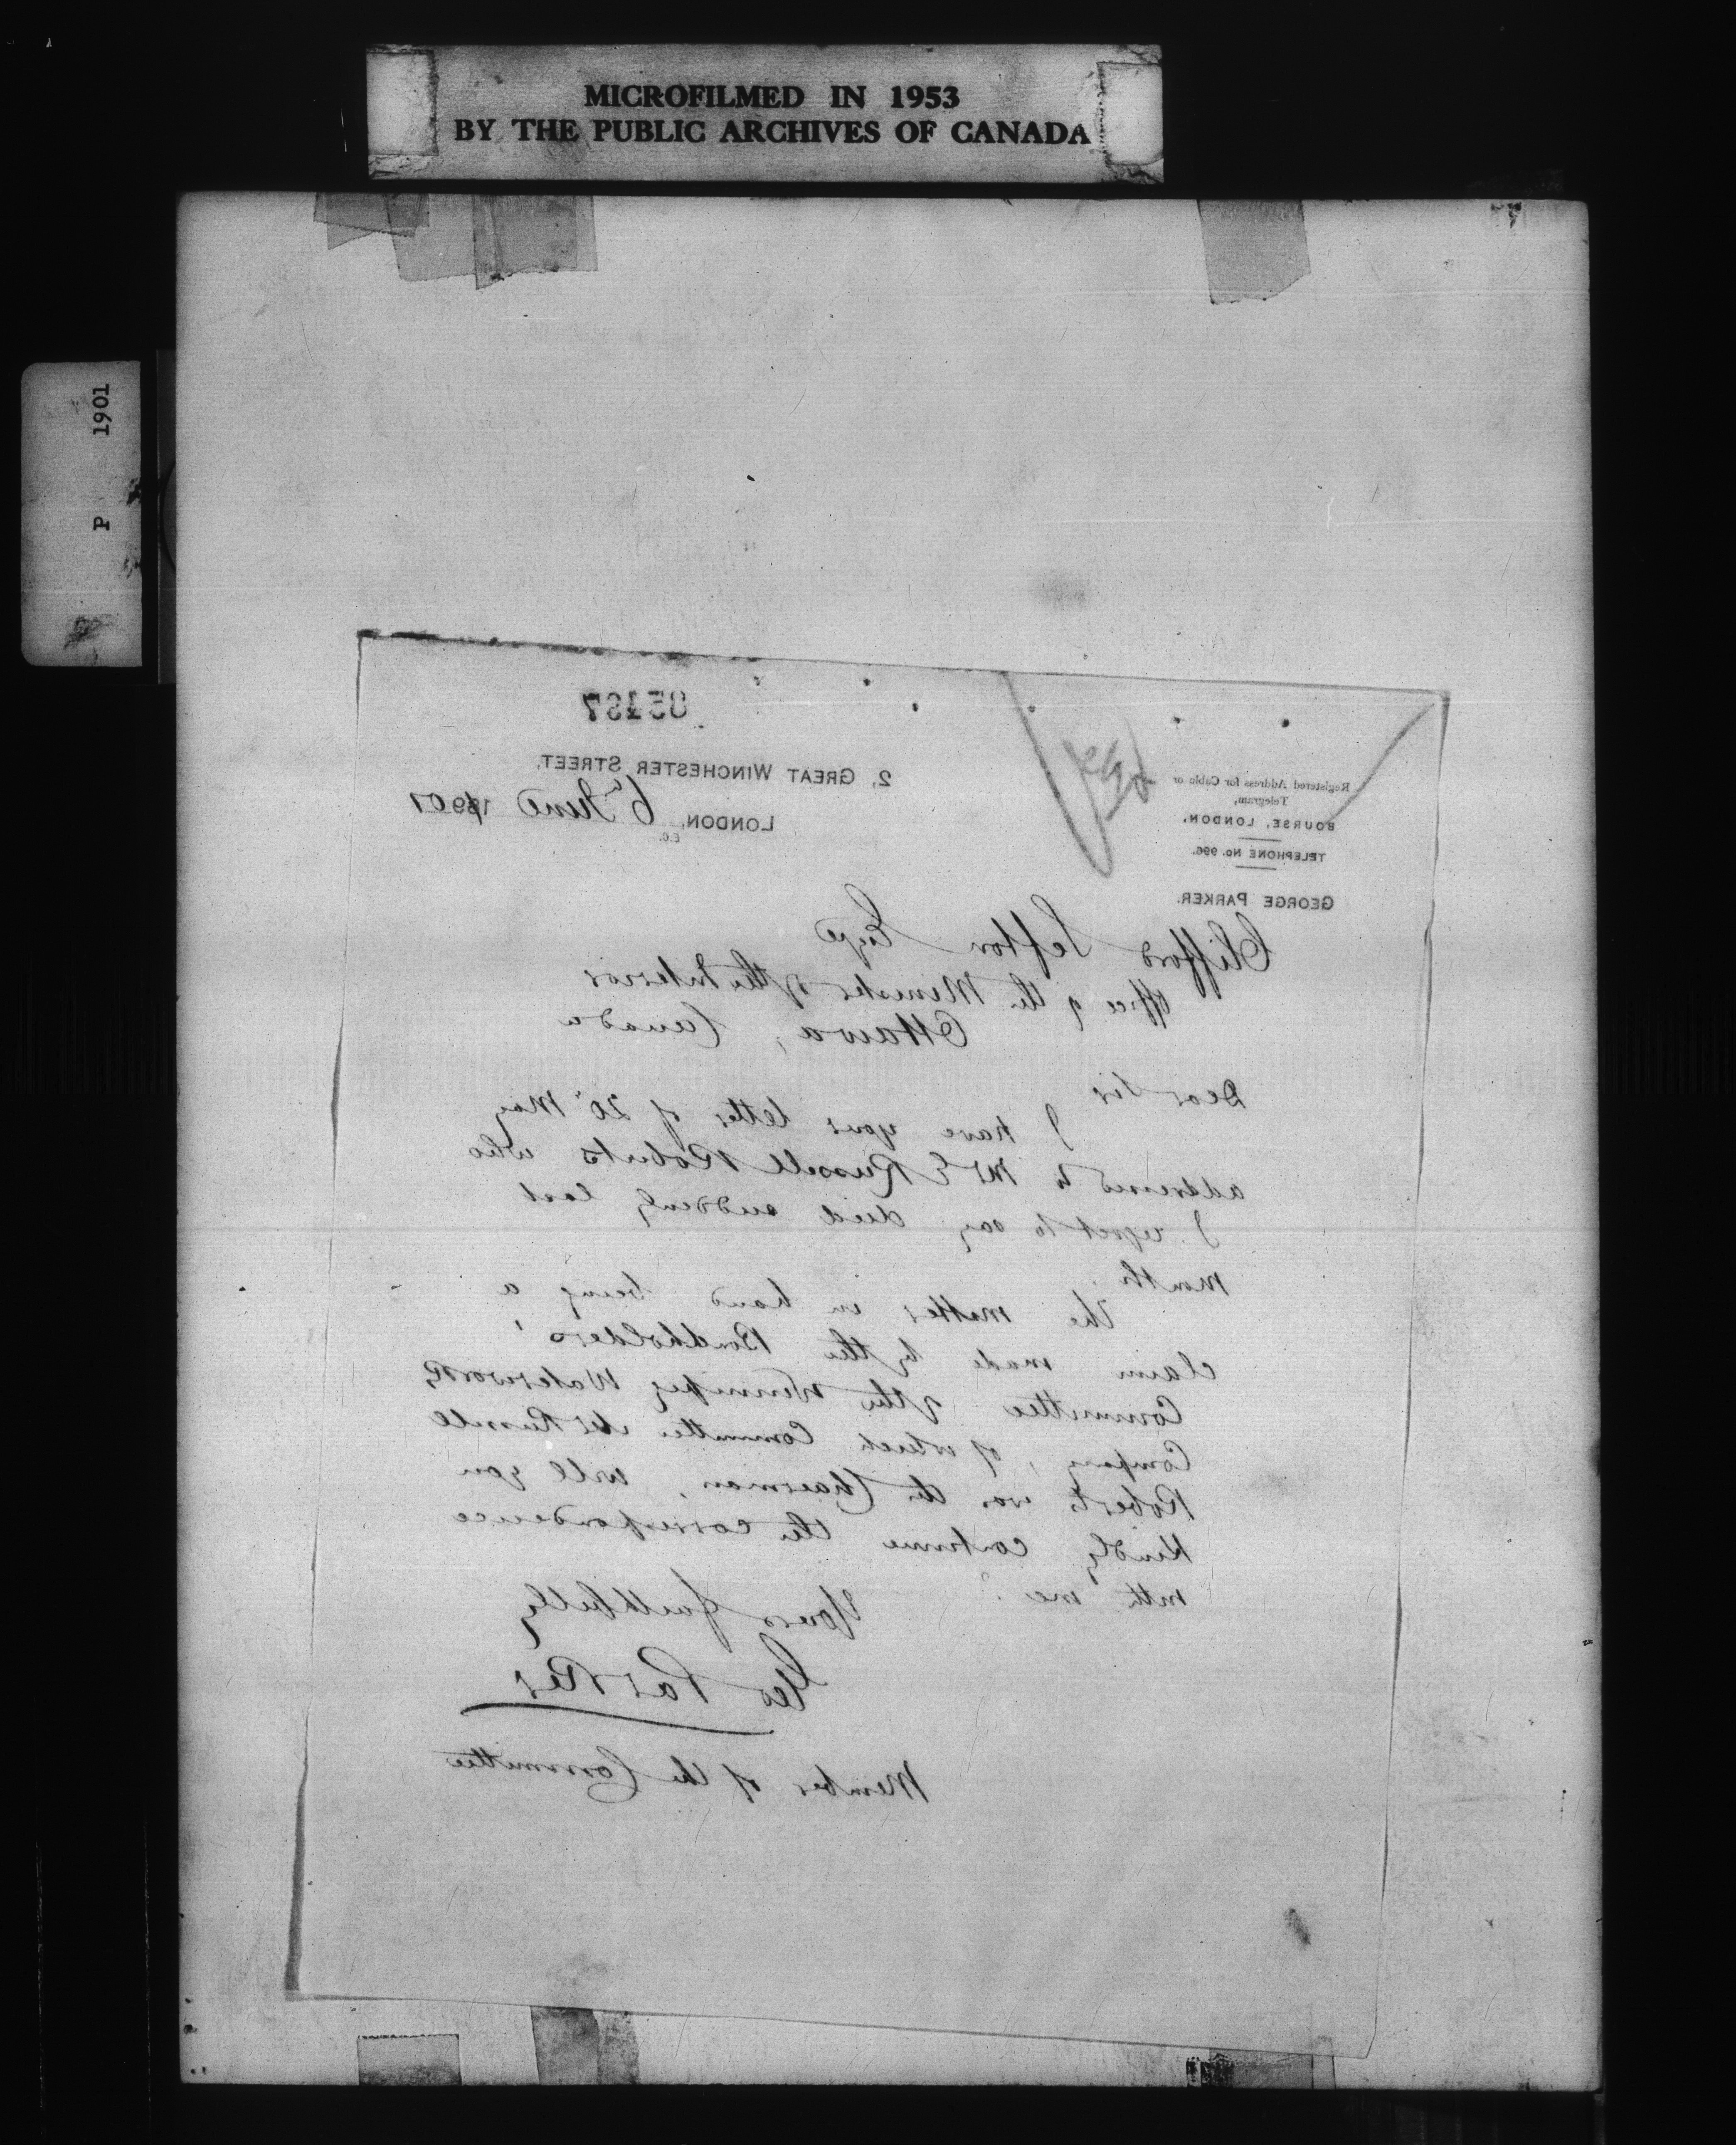 MICROFILMED IN 1953
BY THE PUBLIC ARCHIVES OF CANADA
P 1901
85197
Registered Address for Cable or
Telegram,
BOURSE, LONDON.
TELEPHONE No. 996.
GEORGE PARKER.
2, GREAT WINCHESTER STREET,
LONDON, E.C. 6 June 1901
Clifford Sefton Esqre
Office of the Minister of the Interior
Ottawa, Canada
Dear Sir
I have your letter of 20 May
addressed to Mr E Russell Roberts who
I regret to say died suddenly last
month.
The matter in hand being a
claim made by the Bondholders'
Committee of the Winnipeg Waterworks
Company, of which Committee Mr Russell
Roberts was the Chairman, will you
kindly continue the correspondence
with me?
Yours faithfully
Geo Parker
Member of the Committee